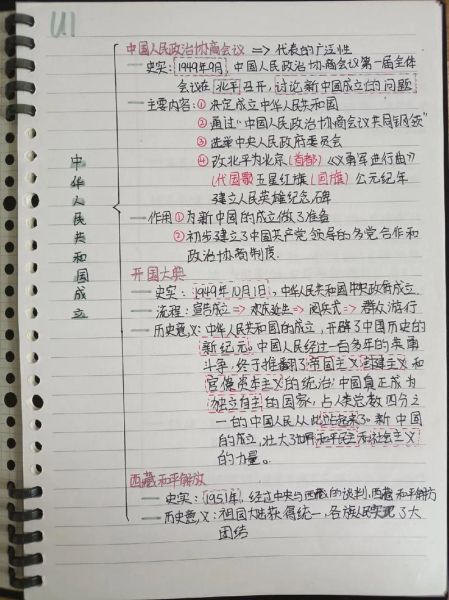 U1
中华人民共和国成立
中国人民政治协商会议 => 代表的广泛性
— 史实: 1949年9月, 中国人民政治协商会议第一届全体
会议在北平召开, 讨论新中国成立的问题
— 主要内容: ① 决定成立中华人民共和国
② 通过“中国人民政治协商会议共同纲领”
③ 选举中央人民政府委员会
④ 改北平为北京(首都)《义勇军进行曲》
(代国歌 五星红旗(国旗) 公元纪年
建立人民英雄纪念碑
— 作用 ① 为新中国的成立做了准备
② 初步建立了中国共产党领导的多党合作和
政治协商制度.
开国大典
— 史实: 1949年10月1日, 中华人民共和国中央政府成立
— 流程: 宣告成立 => => 阅兵式 => 群众游行
— 历史意义: 中华人民共和国的成立, 开辟了中国历史的
新纪元。中国人民经过一百多年的英勇
斗争, 终于推翻了帝国主义 封建主义和
官僚资本主义的统治; 中国真正成为
独立自主的国家, 占人类总数四分之
一的中国人民从此站起来了。新中国
的成立, 壮大了世界和平民主和社会主义
的力量。
西藏和平解放
— 史实: 1951年, 经过中央与西藏的谈判, 西藏和平解方
— 历史意义: 祖国大陆获得统一, 各族人民实现了大
团结